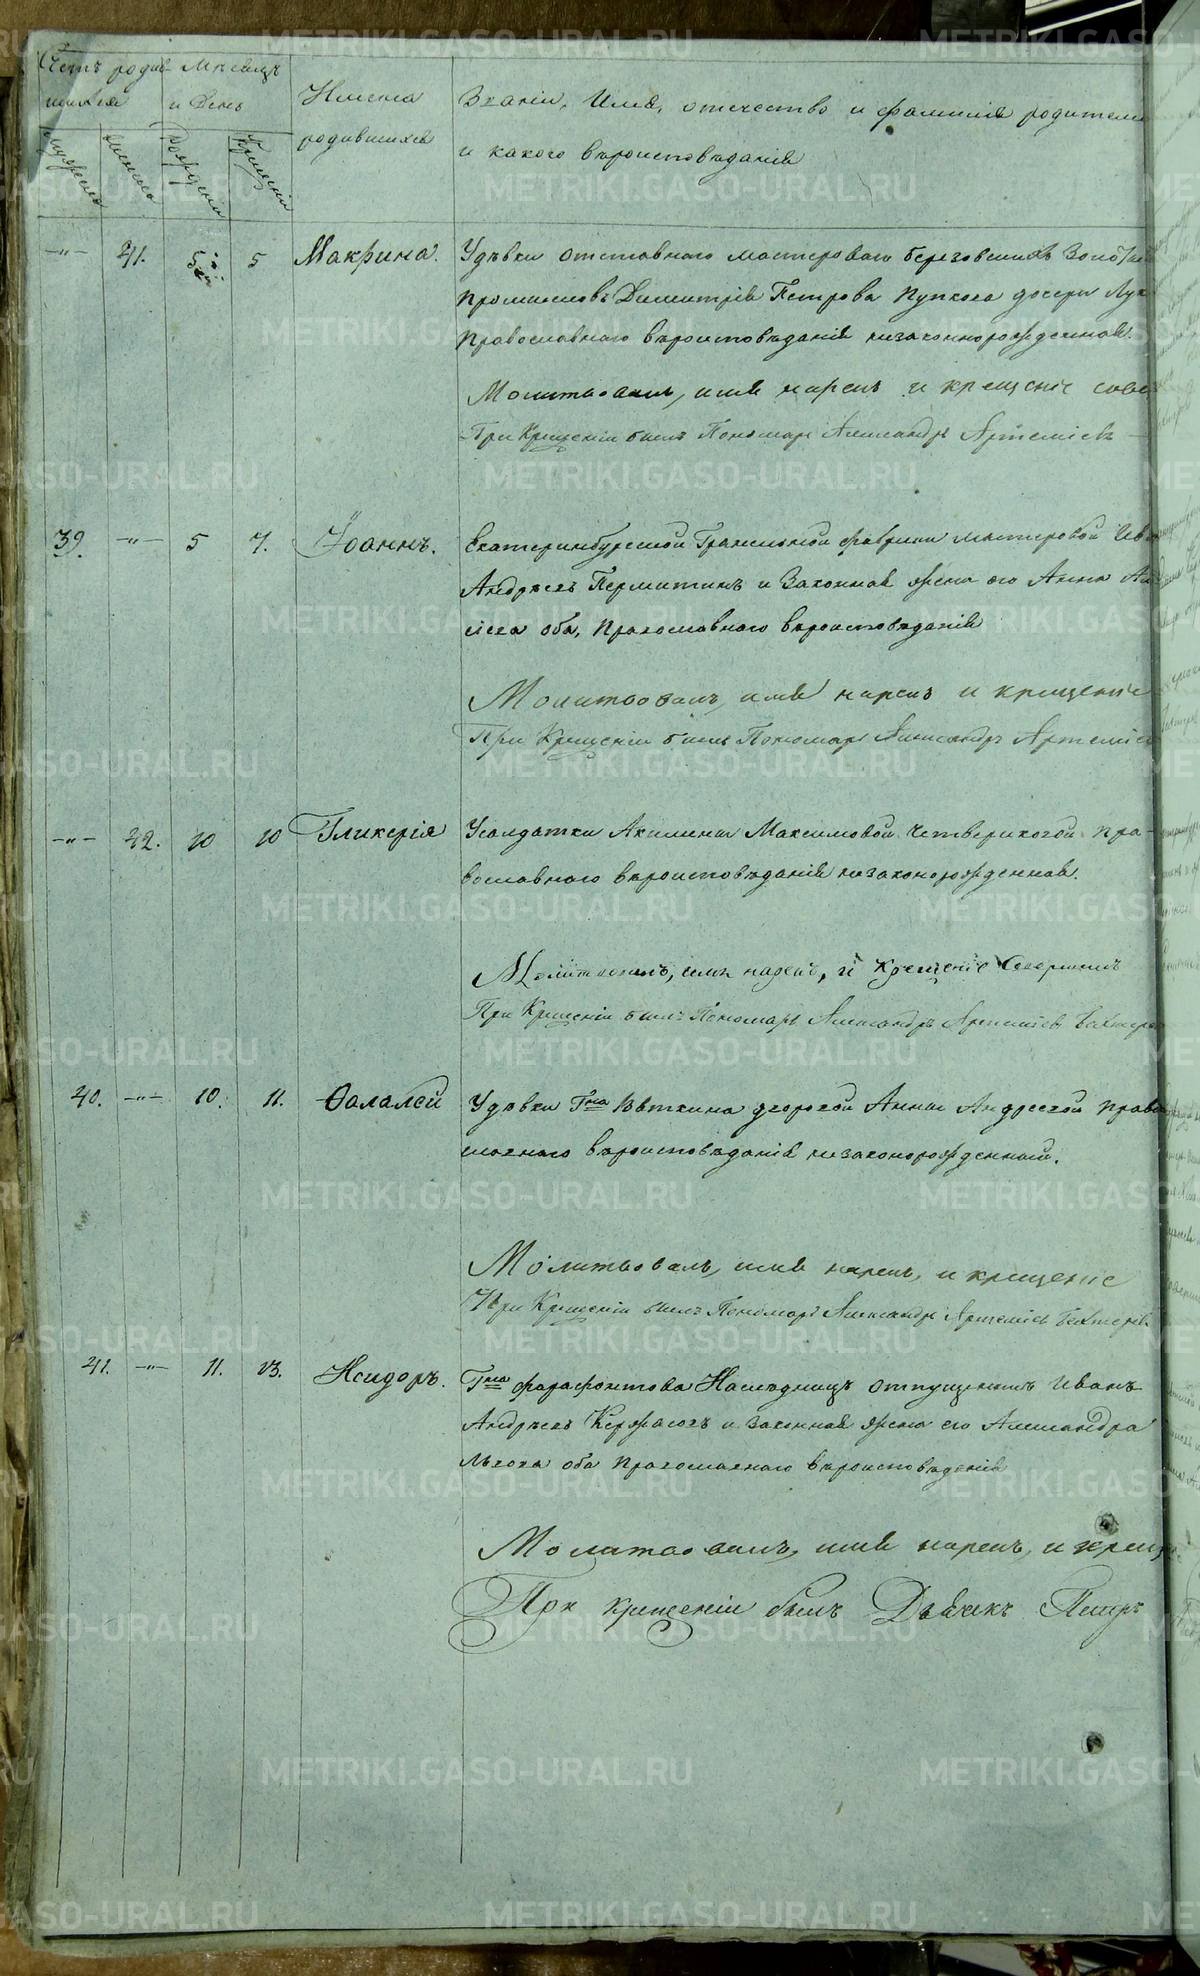 Счетъ родив- Мѣсяцъ
шихся и День
Имена
родившихся
Званіе, Имя, отчество и фамилія родителей
и какого вѣроисповѣданія
мужеска женска Рожденія Крещенія
—"— 41. 5 5 Макрина. Удѣвки отставнаго мастероваго Березовскихъ
Промысловъ Димитрія Петрова Пупкова дочери
Православнаго вѣроисповѣданія незаконнорожденная.
Молитвовалъ, имя нарекъ и крещеніе
При Крещеніи былъ Пономарь Александръ Артеміевъ
39. —"— 5 7. Іоаннъ. Екатеринбургской Гранильной фабрики мастеровой
Андреевъ Пермитинъ и Законная жена его Анна
оба, православнаго вѣроисповѣданія
Молитвовалъ, имя нарекъ и крещеніе
При Крещеніи былъ Пономарь Александръ Артеміев
—"— 42. 10 10 Гликерія Усолдатки Акилины Максимовой Четвериковой пра-
вославнаго вѣроисповѣданія незаконорожденная.
Молитвовалъ, имя нарекъ, и крещеніе совершилъ
При Крещеніи былъ Пономарь Александръ Артеміевъ
40. —"— 10. 11. Ѳалалей Удѣвки Гна дворовой Анны Андреевой право
славнаго вѣроисповѣданія незаконорожденный.
Молитвовалъ, имя нарекъ, и крещеніе
При Крещеніи былъ Пономарь Александръ Артеміевъ
41. —"— 11. 13. Исидоръ. Гна Фарафонтова Наслѣдницъ отпущенникъ Иванъ
Андреевъ и законная жена его Александра
оба православнаго вѣроисповѣданія
Молитвовалъ, имя нарекъ, и крещ
При крещеніи былъ Дьячекъ Петръ
METRIKI.GASO-URAL.RU